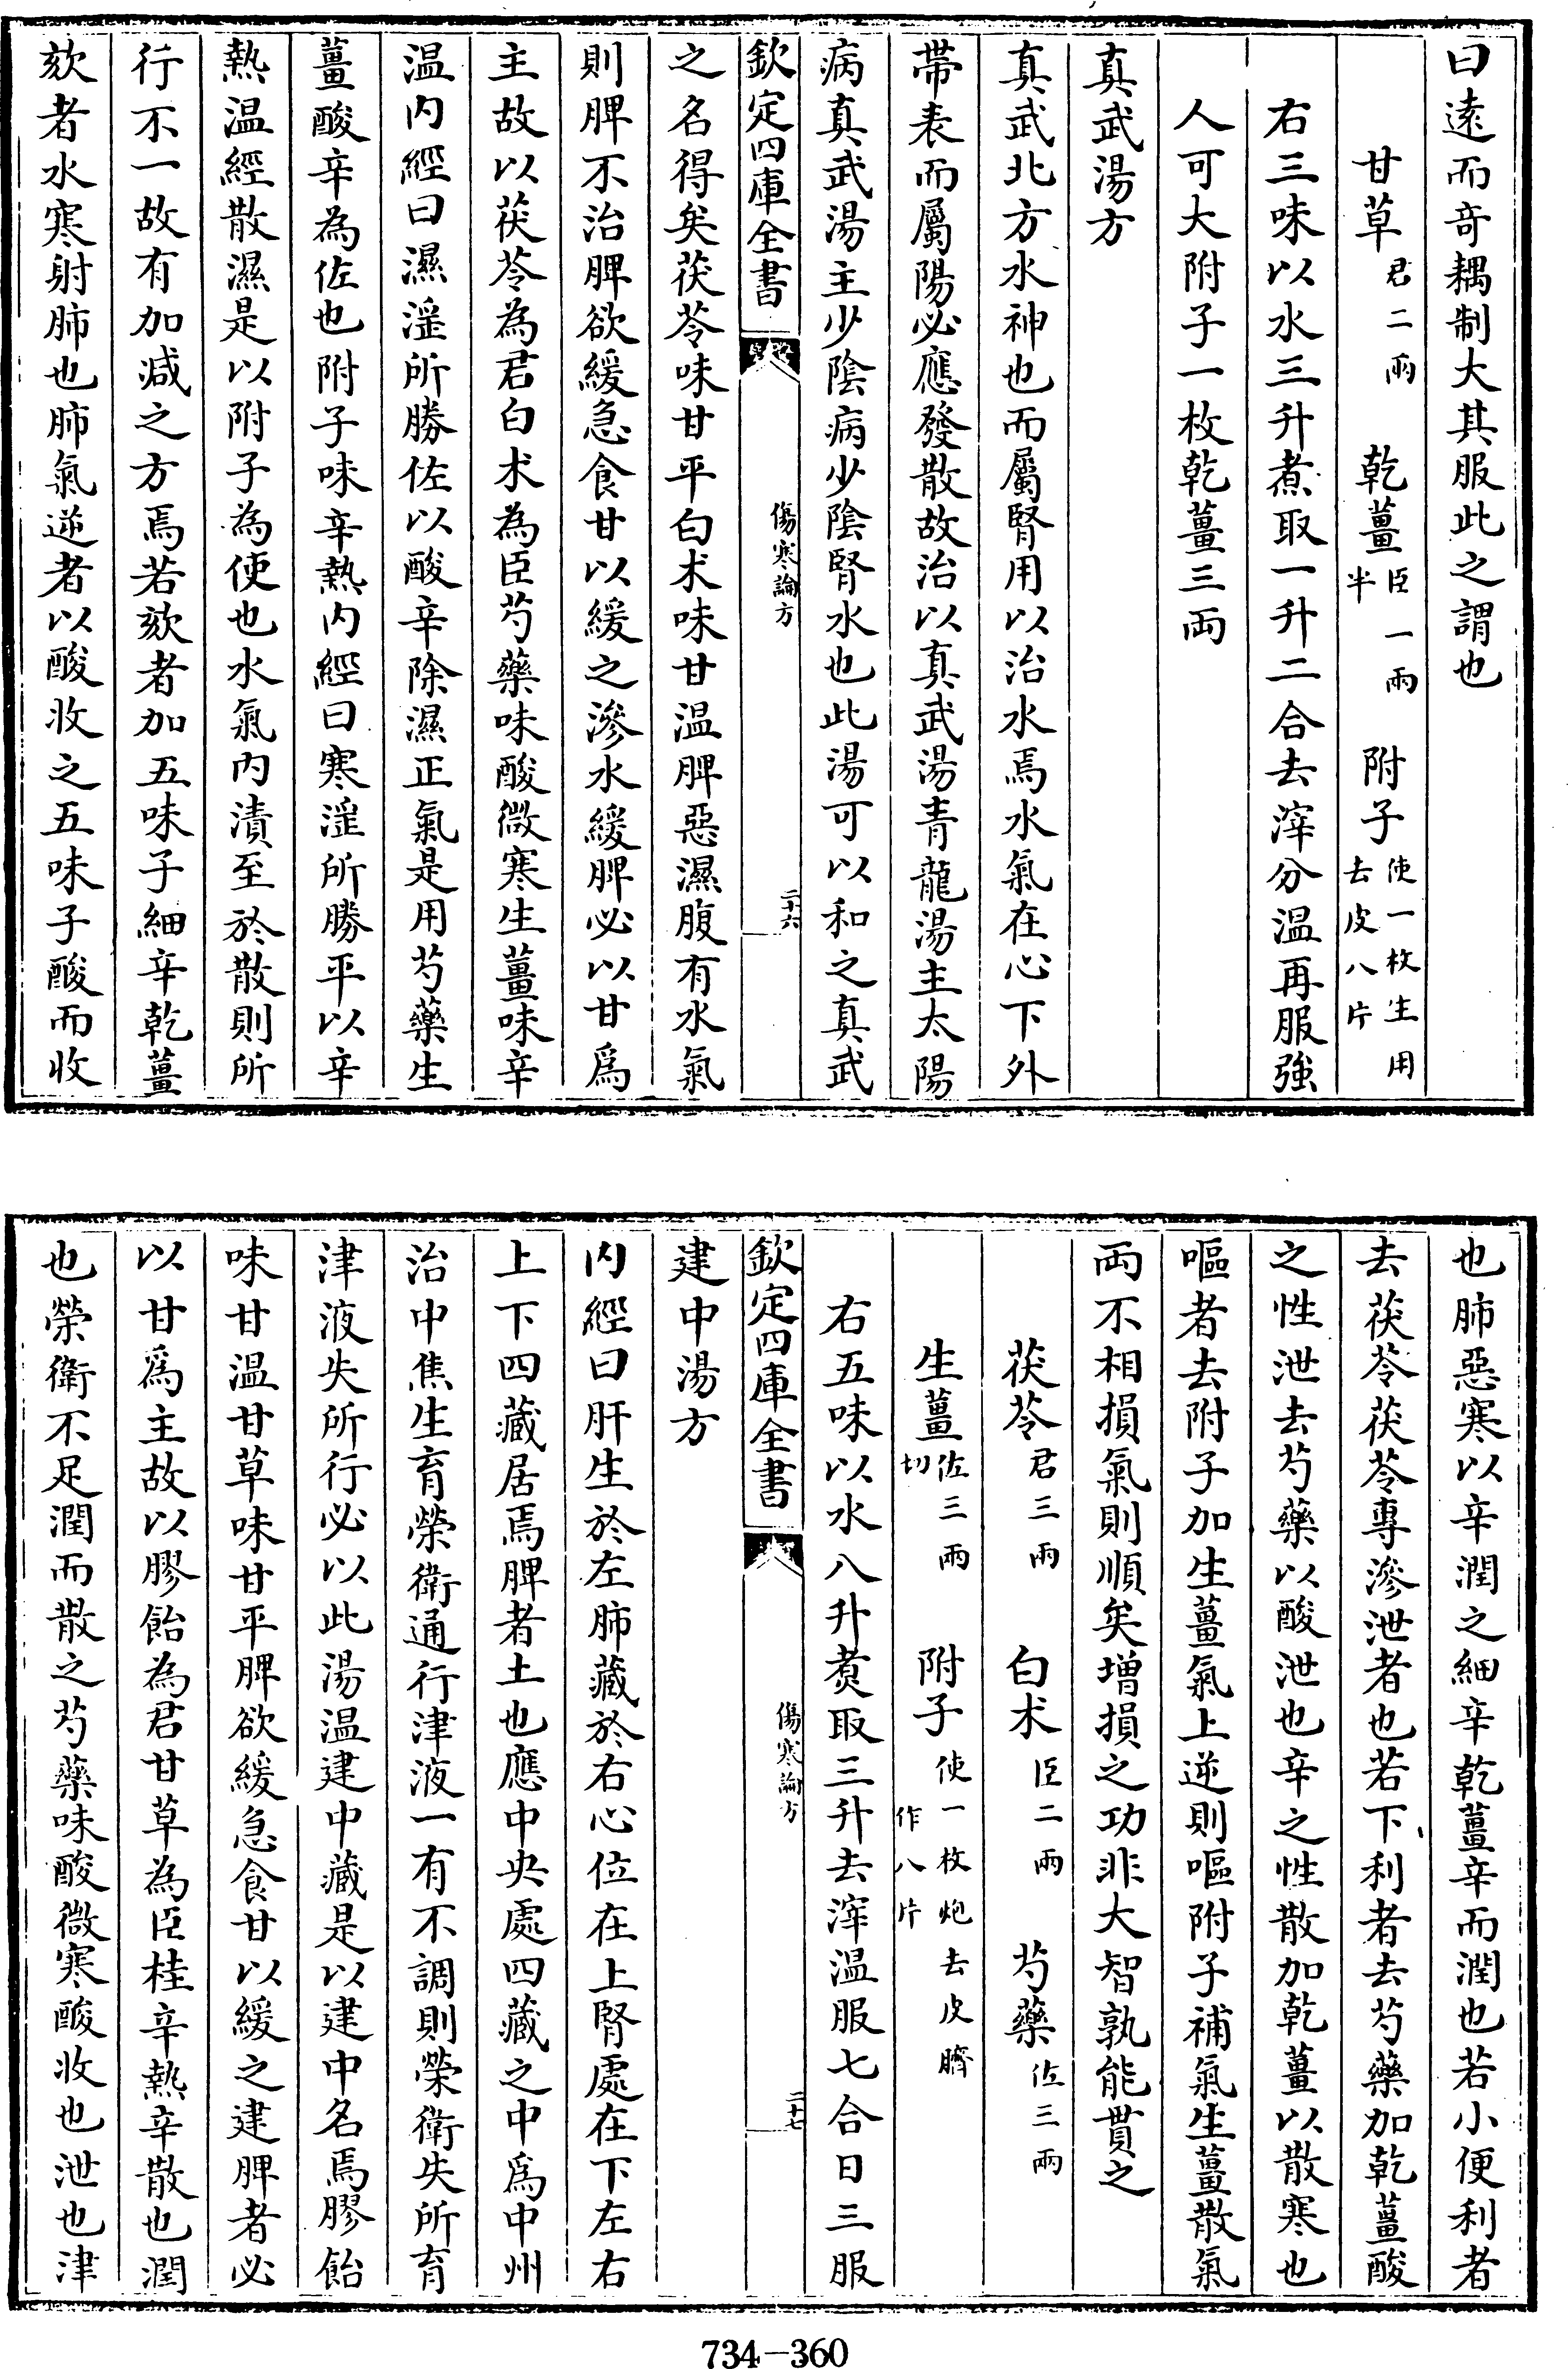 曰逺而竒耦制大其服此之謂也
甘草君二兩 乾薑臣一兩半 附子使一枚生用去皮八片
右三味以水三升煮取一升二合去滓分温再服強
人可大附子一枚乾薑三両
真武湯方
真武北方水神也而屬腎用以治水焉水氣在心下外
帶表而屬陽必應發散故治以真武湯青龍湯主太陽
病真武湯主少隂病少隂腎水也此湯可以和之真武
欽定四庫全書
傷寒論方
二十六
之名得矣茯苓味甘平白术味甘温脾惡濕腹有水氣
則脾不治脾欲緩急食甘以緩之滲水緩脾必以甘爲
主故以茯苓為君白术為臣芍藥味酸微寒生薑味辛
温内經曰濕淫所勝佐以酸辛除濕正氣是用芍藥生
薑酸辛為佐也附子味辛熱内經曰寒淫所勝平以辛
熱温經散濕是以附子為使也水氣内漬至於散則所
行不一故有加減之方焉若欬者加五味子細辛乾薑
欬者水寒射肺也肺氣逆者以酸收之五味子酸而收
也肺惡寒以辛潤之細辛乾薑辛而潤也若小便利者
去茯苓茯苓專滲泄者也若下利者去芍藥加乾薑酸
之性泄去芍藥以酸泄也辛之性散加乾薑以散寒也
嘔者去附子加生薑氣上逆則嘔附子補氣生薑散氣
両不相損氣則順矣增損之功非大智孰能貫之
茯苓君三兩 白术臣二兩 芍藥佐三兩
生薑佐三兩切 附子使一枚炮去皮臍作八片
右五味以水八升煑取三升去滓温服七合日三服
欽定四庫全書
傷寒論方
二十七
建中湯方
内經曰肝生於左肺藏於右心位在上腎處在下左右
上下四藏居焉脾者土也應中央處四藏之中爲中州
治中焦生育榮衛通行津液一有不調則榮衛失所育
津液失所行必以此湯温建中藏是以建中名焉膠飴
味甘温甘草味甘平脾欲緩急食甘以緩之建脾者必
以甘爲主故以膠飴為君甘草為臣桂辛熱辛散也潤
也榮衛不足潤而散之芍藥味酸微寒酸收也泄也津
734-360